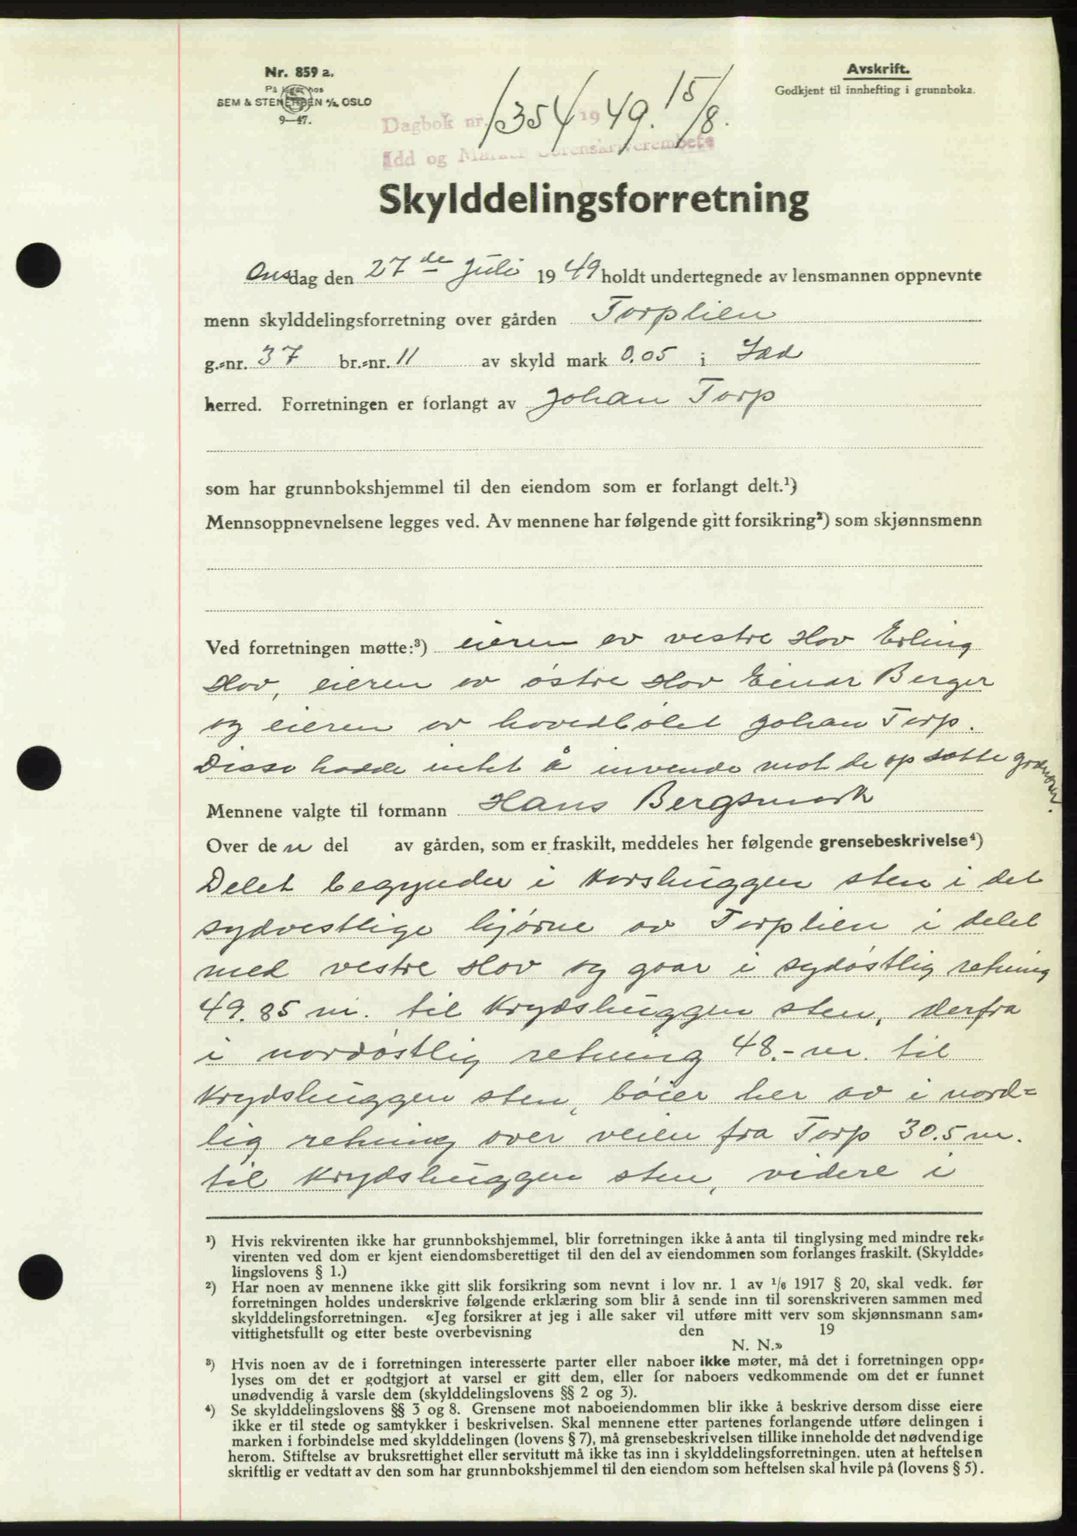 Nr. 859 a.
På lager hos
SEM & STENERSEN A/S, OSLO
9—47.
Avskrift.
Godkjent til innhefting i grunnboka.
Dagbok nr. 1354 1949. 15/8.
Idd og Marker Sorenskriverembete
Skylddelingsforretning
Onsdag den 27de Juli 1949 holdt undertegnede av lensmannen oppnevnte
menn skylddelingsforretning over gården Torplien
g.-nr. 37 br.-nr. 11 av skyld mark 0.05 i Idd
herred. Forretningen er forlangt av Johan Torp
som har grunnbokshjemmel til den eiendom som er forlangt delt.¹)
Mennsoppnevnelsene legges ved. Av mennene har følgende gitt forsikring²) som skjønnsmenn
Ved forretningen møtte:³) eieren av vestre Hov Erling
Hov, eieren av østre Hov Einar Berger
og eieren av hovedbølet Johan Torp.
Disse hadde intet å invende mot de op satte grænser.
Mennene valgte til formann Hans Bergsmark
Over den del av gården, som er fraskilt, meddeles her følgende grensebeskrivelse⁴)
Delet begynder i Korshuggen sten i det
sydvestlige hjørne av Torplien i delet
med vestre Hov og gaar i sydøstlig retning
49.85 m. til Krydshuggen sten, derfra
i nordøstlig retning 48.- m. til
Krydshuggen sten, bøier her av i nord=
lig retning over veien fra Torp 30.5 m.
til Krydshuggen sten, videre i
¹) Hvis rekvirenten ikke har grunnbokshjemmel, blir forretningen ikke å anta til tinglysing med mindre rek-
virenten ved dom er kjent eiendomsberettiget til den del av eiendommen som forlanges fraskilt. (Skyldde-
lingslovens § 1.)
²) Har noen av mennene ikke gitt slik forsikring som nevnt i lov nr. 1 av 1/6 1917 § 20, skal vedk. før
forretningen holdes underskrive følgende erklæring som blir å sende inn til sorenskriveren sammen med
skylddelingsforretningen. «Jeg forsikrer at jeg i alle saker vil utføre mitt verv som skjønnsmann sam-
vittighetsfullt og etter beste overbevisning den 19
N. N.»
³) Hvis noen av de i forretningen interesserte parter eller naboer ikke møter, må det i forretningen opp-
lyses om det er godtgjort at varsel er gitt dem, eller for naboers vedkommende om det er funnet
unødvendig å varsle dem (skylddelingslovens §§ 2 og 3).
⁴) Se skylddelingslovens §§ 3 og 8. Grensene mot naboeiendommen blir ikke å beskrive dersom disse eiere
ikke er til stede og samtykker i beskrivelsen. Skal mennene etter partenes forlangende utføre delingen i
marken i forbindelse med skylddelingen (lovens § 7), må grensebeskrivelsen tillike inneholde det nødvendige
herom. Stiftelse av bruksrettighet eller servitutt må ikke tas inn i skylddelingsforretningen, uten at heftelsen
skriftlig er vedtatt av den som har grunnbokshjemmel til den eiendom som heftelsen skal hvile på (lovens § 5).